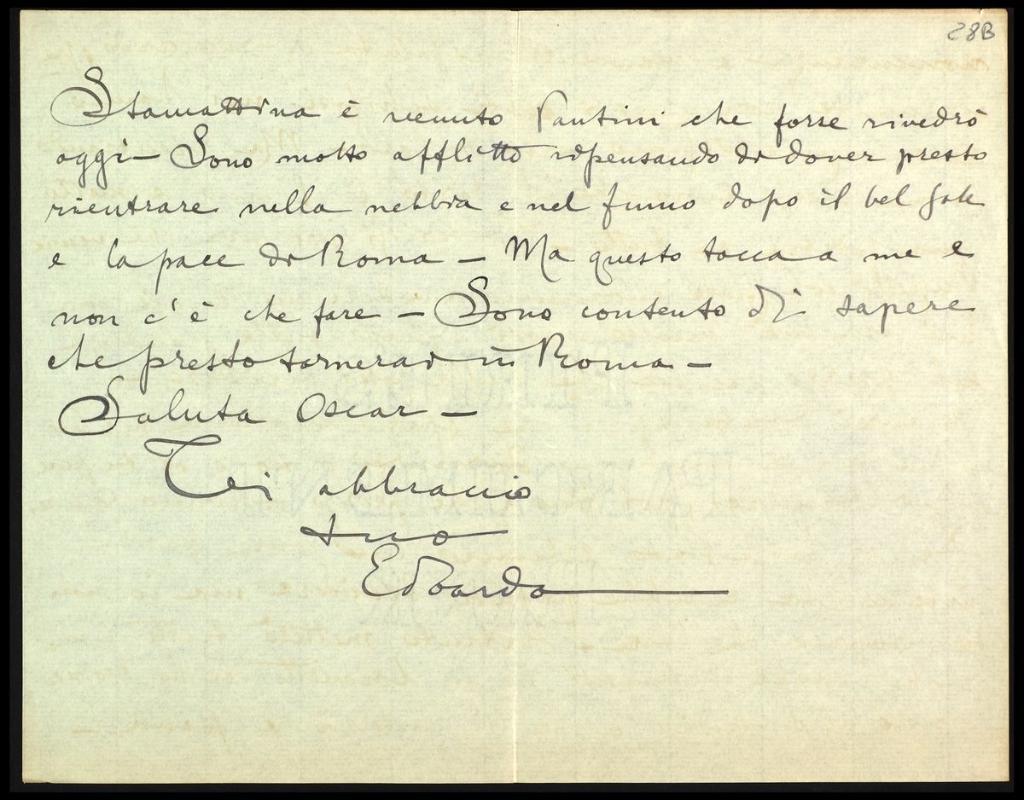 28B
Stamattina è venuto Pantini che forse rivedrò
oggi – Sono molto afflitto ripensando di dover presto
rientrare nella nebbia e nel fumo dopo il bel sole
e la pace di Roma – Ma questo tocca a me e
non c'è che fare – Sono contento di sapere
che presto tornerai in Roma –
Saluta Oscar –
Ti abbraccio
tuo
Edoardo